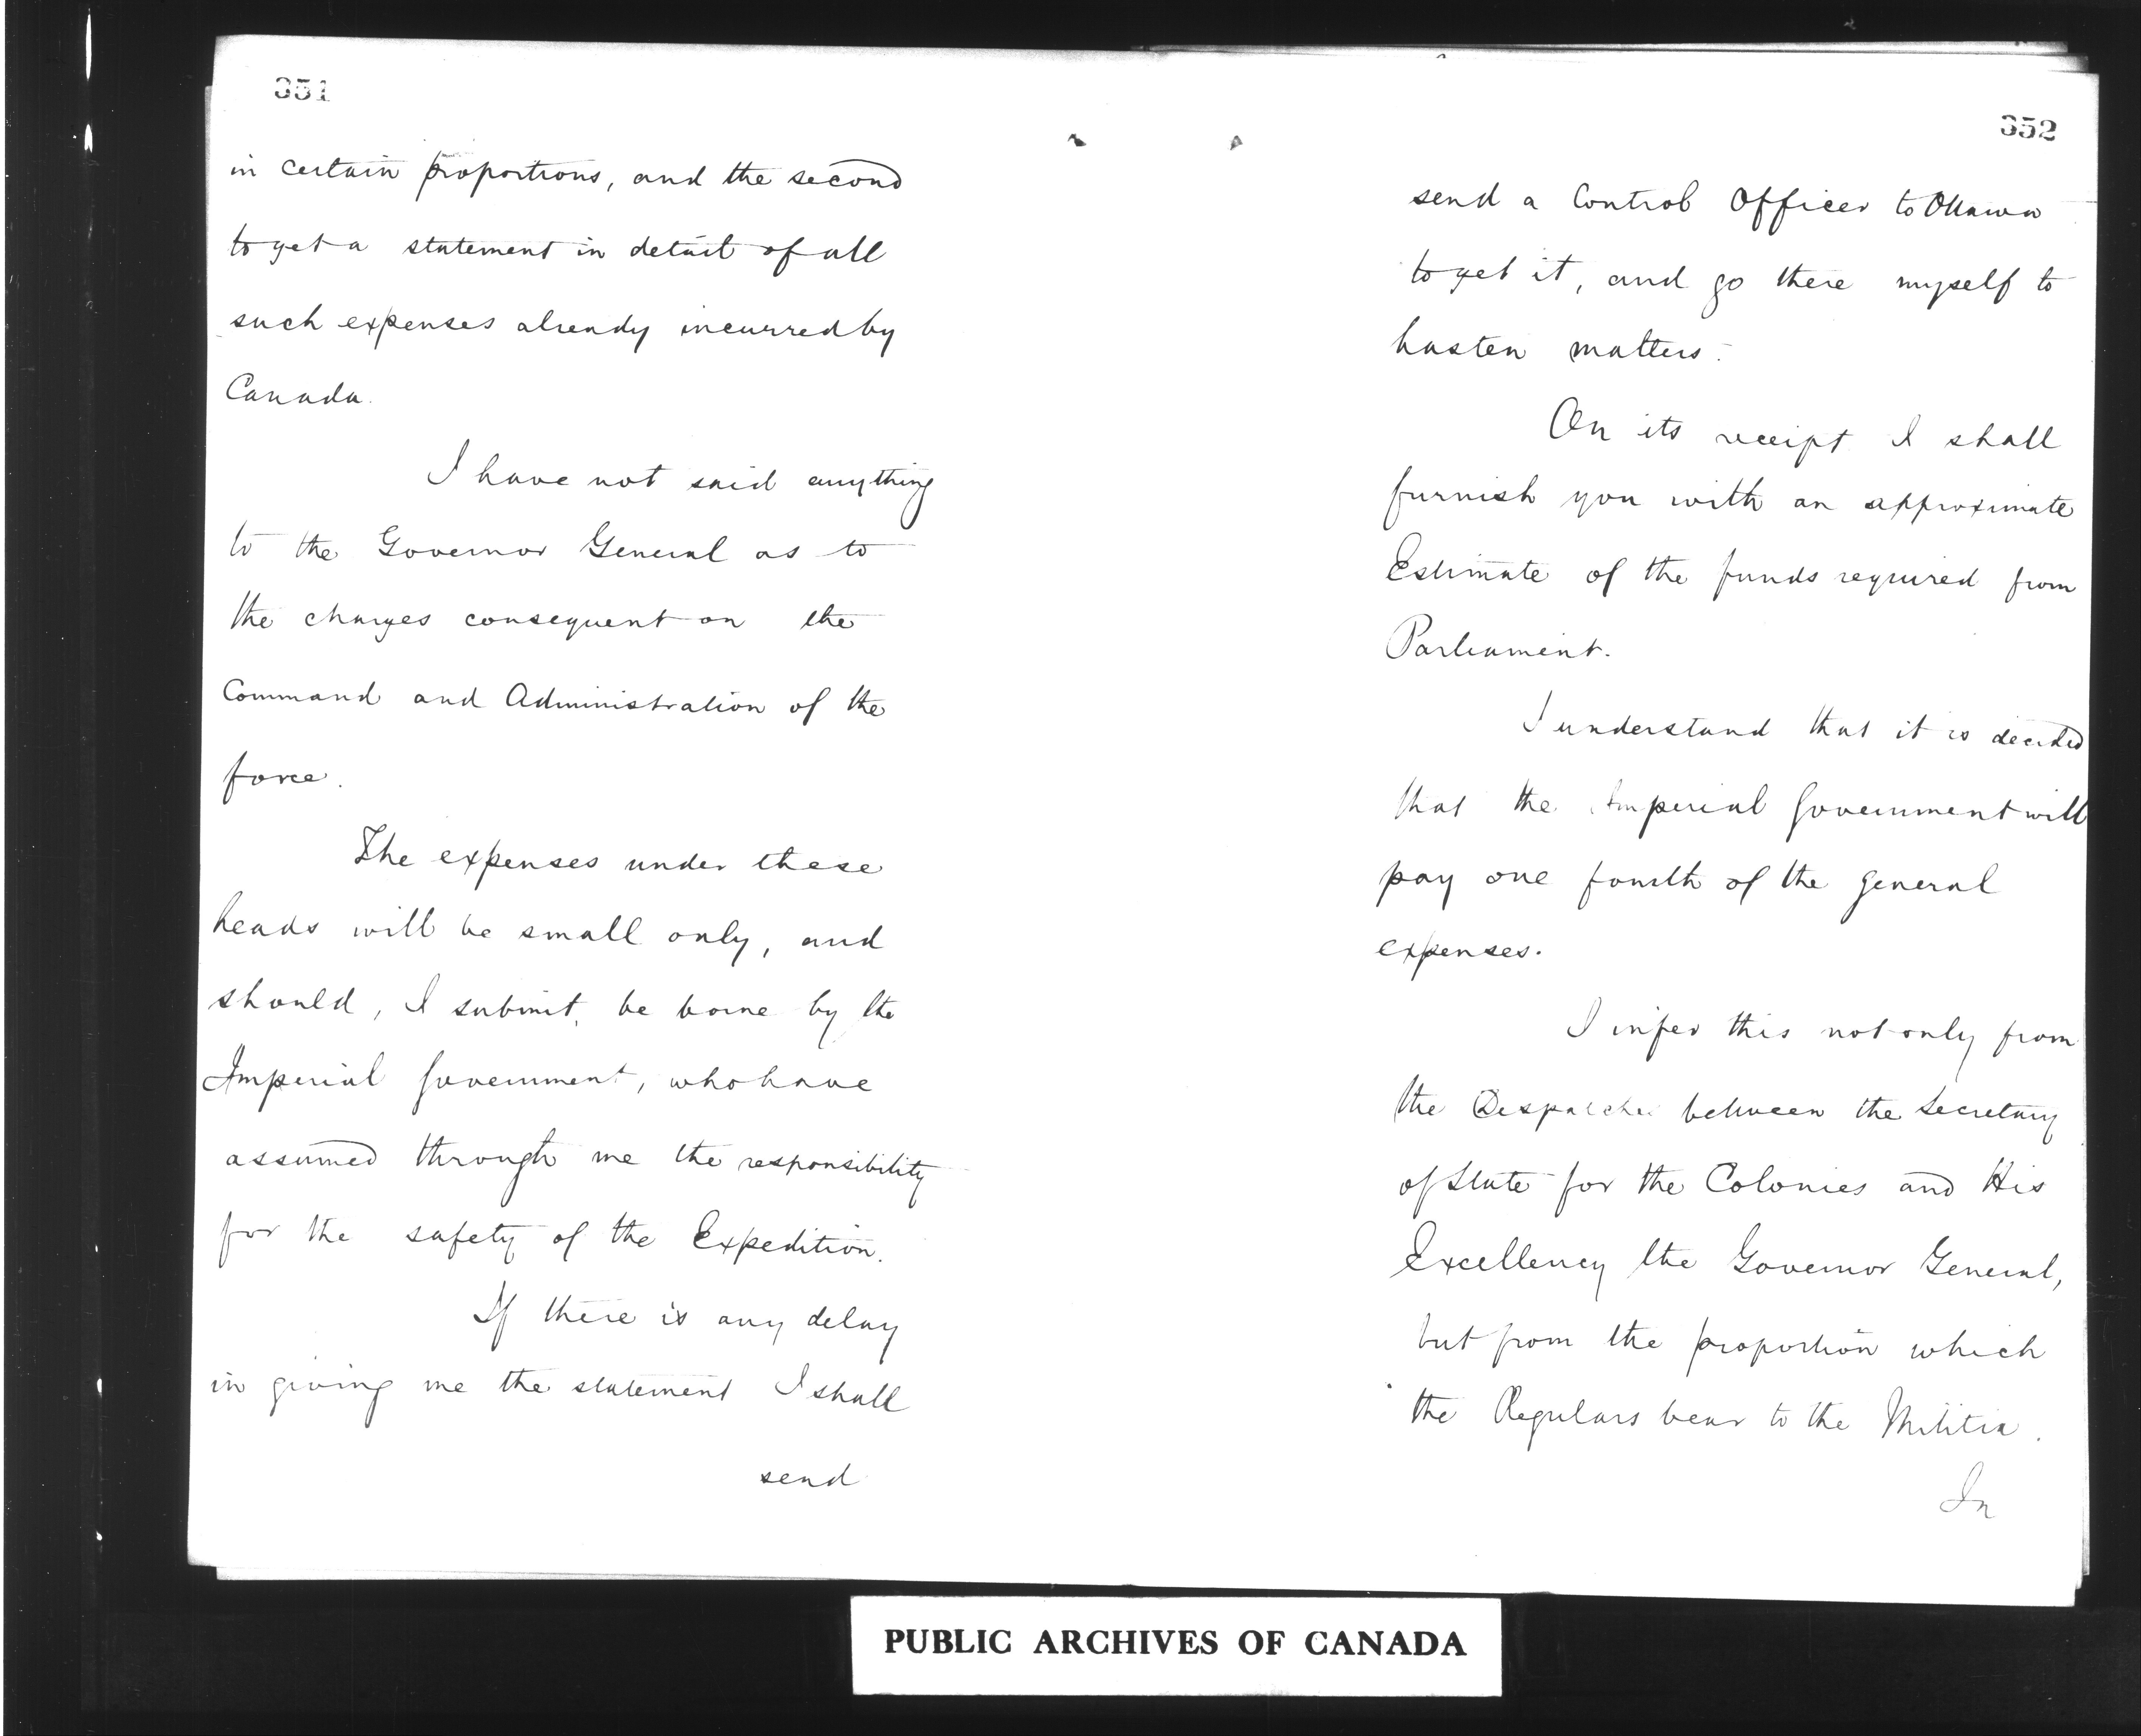 351
in certain proportions, and the second
to get a statement in detail of all
such expenses already incurred by
Canada.
I have not said anything
to the Governor General as to
the charges consequent on the
Command and Administration of the
force.
The expenses under these
heads will be small only, and
should, I submit, be borne by the
Imperial Government, who have
assumed through me the responsibility
for the safety of the Expedition.
If there is any delay
in giving me the statement I shall
send
352
send a Control Officer to Ottawa
to get it, and go there myself to
hasten matters.
On its receipt I shall
furnish you with an approximate
Estimate of the funds required from
Parliament.
I understand that it is decided
that the Imperial Government will
pay one fourth of the general
expenses.
I infer this not only from
the Despatches between the Secretary
of State for the Colonies and His
Excellency the Governor General,
but from the proportion which
the Regulars bear to the Militia.
In
PUBLIC ARCHIVES OF CANADA